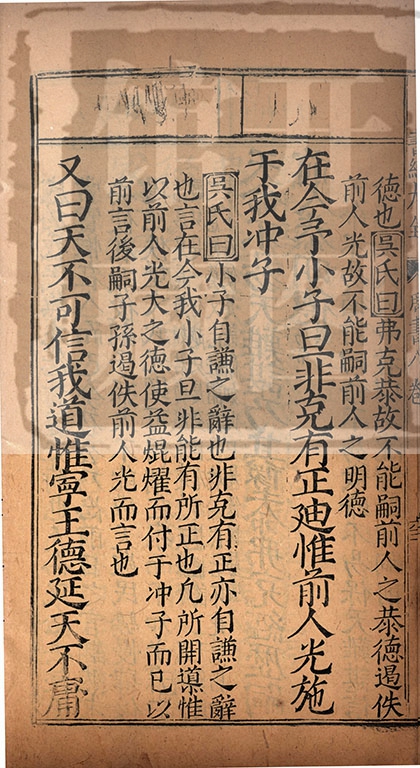 德也吳氏曰弗克恭故不能嗣前人之恭德遏佚
前人光故不能嗣前人之明德
在今予小子旦非克有正廸惟前人光施
于我冲子
吳氏曰小子自謙之辭也非克有正亦自謙之辭
也言在今我小子旦非能有所正也凡所開導惟
以前人光大之德使益焜燿而付于冲子而已以
前言後嗣子孫遏佚前人光而言也
又曰天不可信我道惟寧王德延天不庸